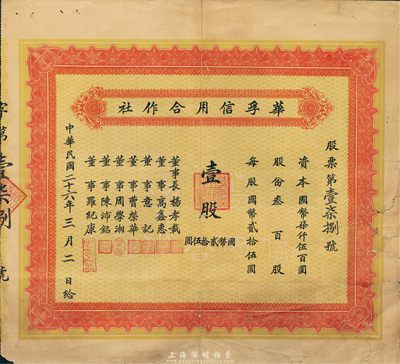 華孚信用合作社
股票第壹柒捌號
資本國幣柒仟伍百圓
股份叁百股
每股國幣貳拾伍圓
壹股
國幣貳拾伍圓
董事長楊孝哉
董事高鑫惠
董事意記
董事曹榮華
董事周學湘
董事陳沛銘
董事羅紀康
中華民國二十六年三月二日給
字第壹柒捌號
上海陽明拍賣